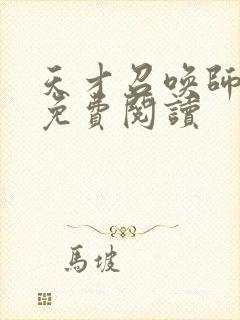 天才召喚師
免費閱讀
馬坡